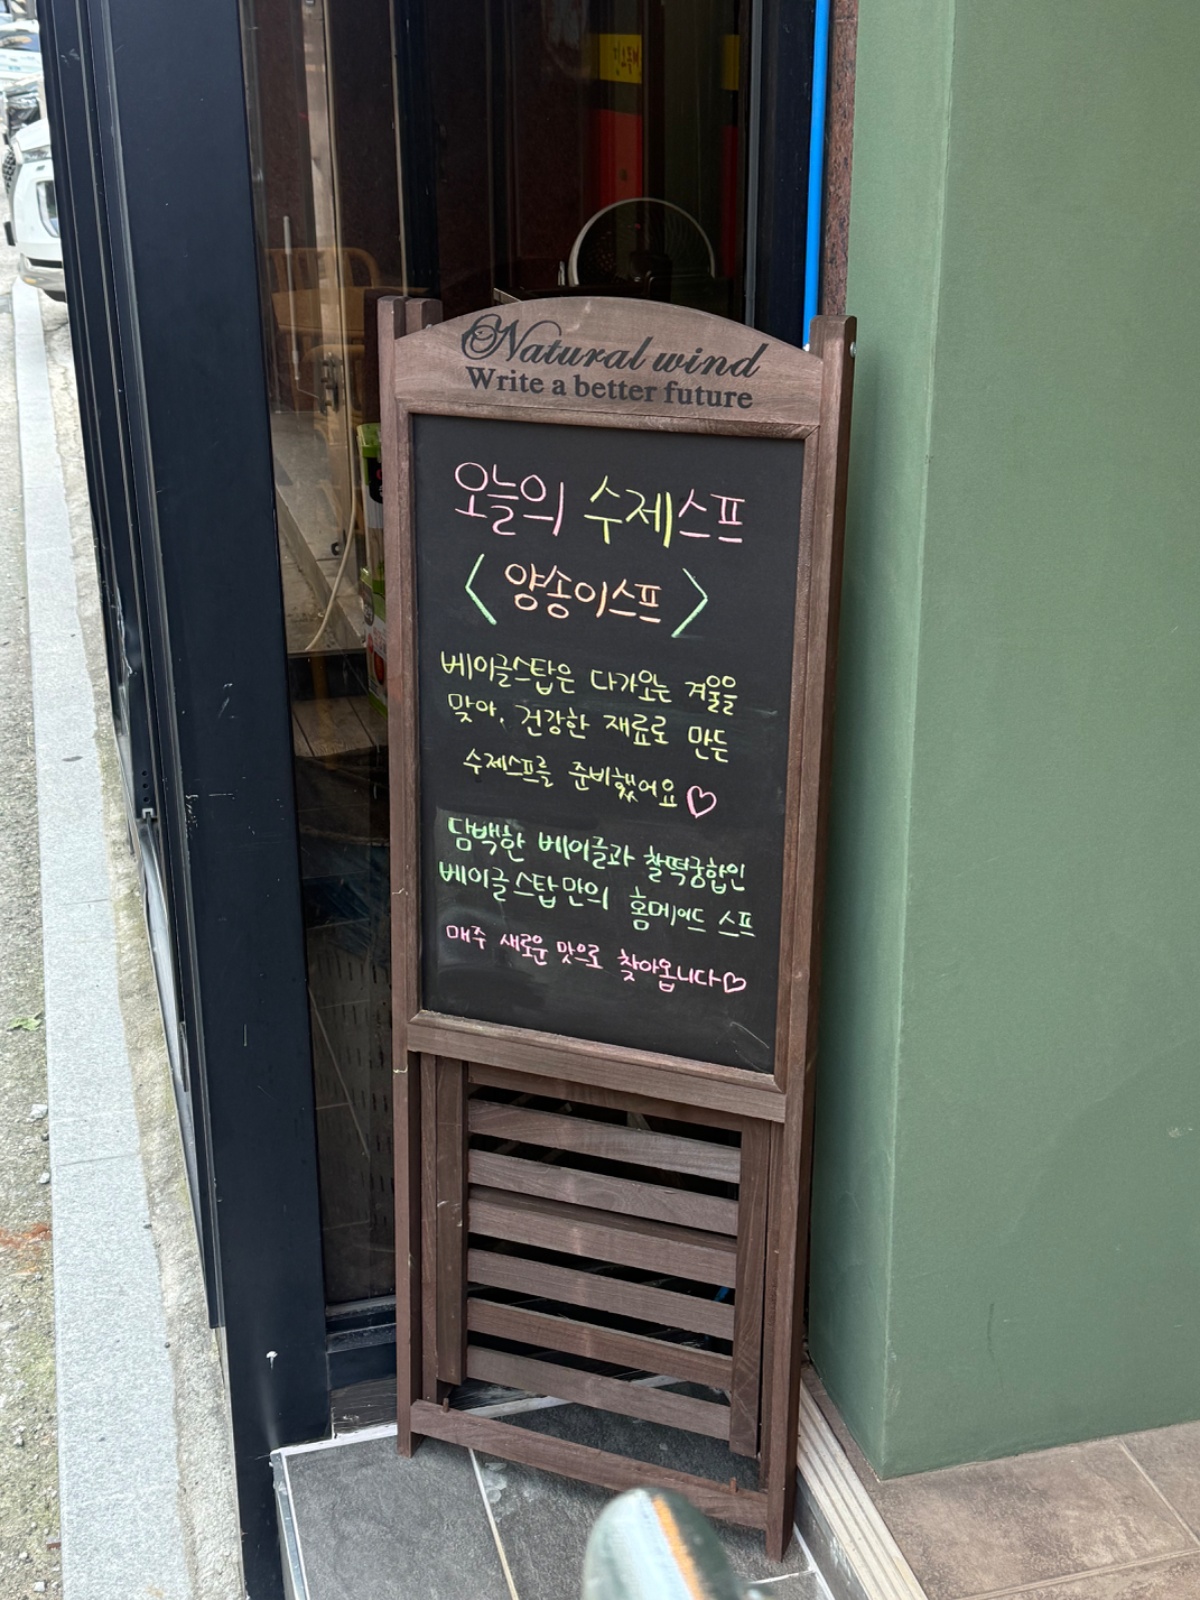 Natural wind
Write a better future
오늘의 수제스프
< 양송이스프 >
베이글스탑은 다가오는 겨울을
맞아, 건강한 재료로 만든
수제스프를 준비했어요♡
담백한 베이글과 찰떡궁합인
베이글스탑만의 홈메이드 스프
매주 새로운 맛으로 찾아옵니다♡